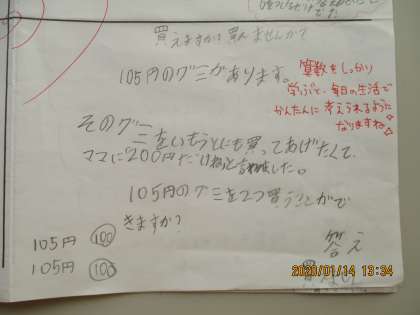 買えますか？買えませんか？
105円のグミがあります。
算数をしっかり
学ぶと、毎日の生活で
かんたんに考えられるように
なりますね☆
そのグミ
をいもうとにも買ってあげたくて、
ママに200円だけねと言われました。
105円のグミを2つ買うことがで
きますか？
105円 100
105円 100
答え
2020/01/14 13:34